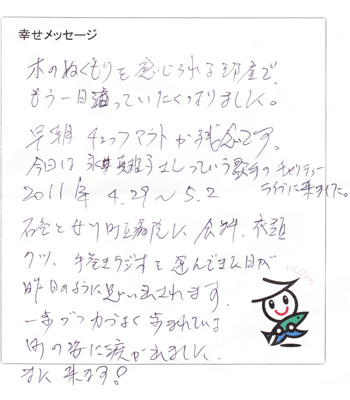 幸せメッセージ
木のぬくもりを感じられる部屋で、
もう一日泊っていたくなりました。
早朝チェックアウトが残念です。
今日は 真理子さんっていう歌手のチャリティー
ライブに来ました。
2011年 4.29〜5.2
石巻と女川町立病院に 食料、衣類
クツ、手巻きラジオを運んできた日が
昨日のように思い出されます。
一歩づつ力づよく歩まれている
町の姿に涙がでました。
また来ます!